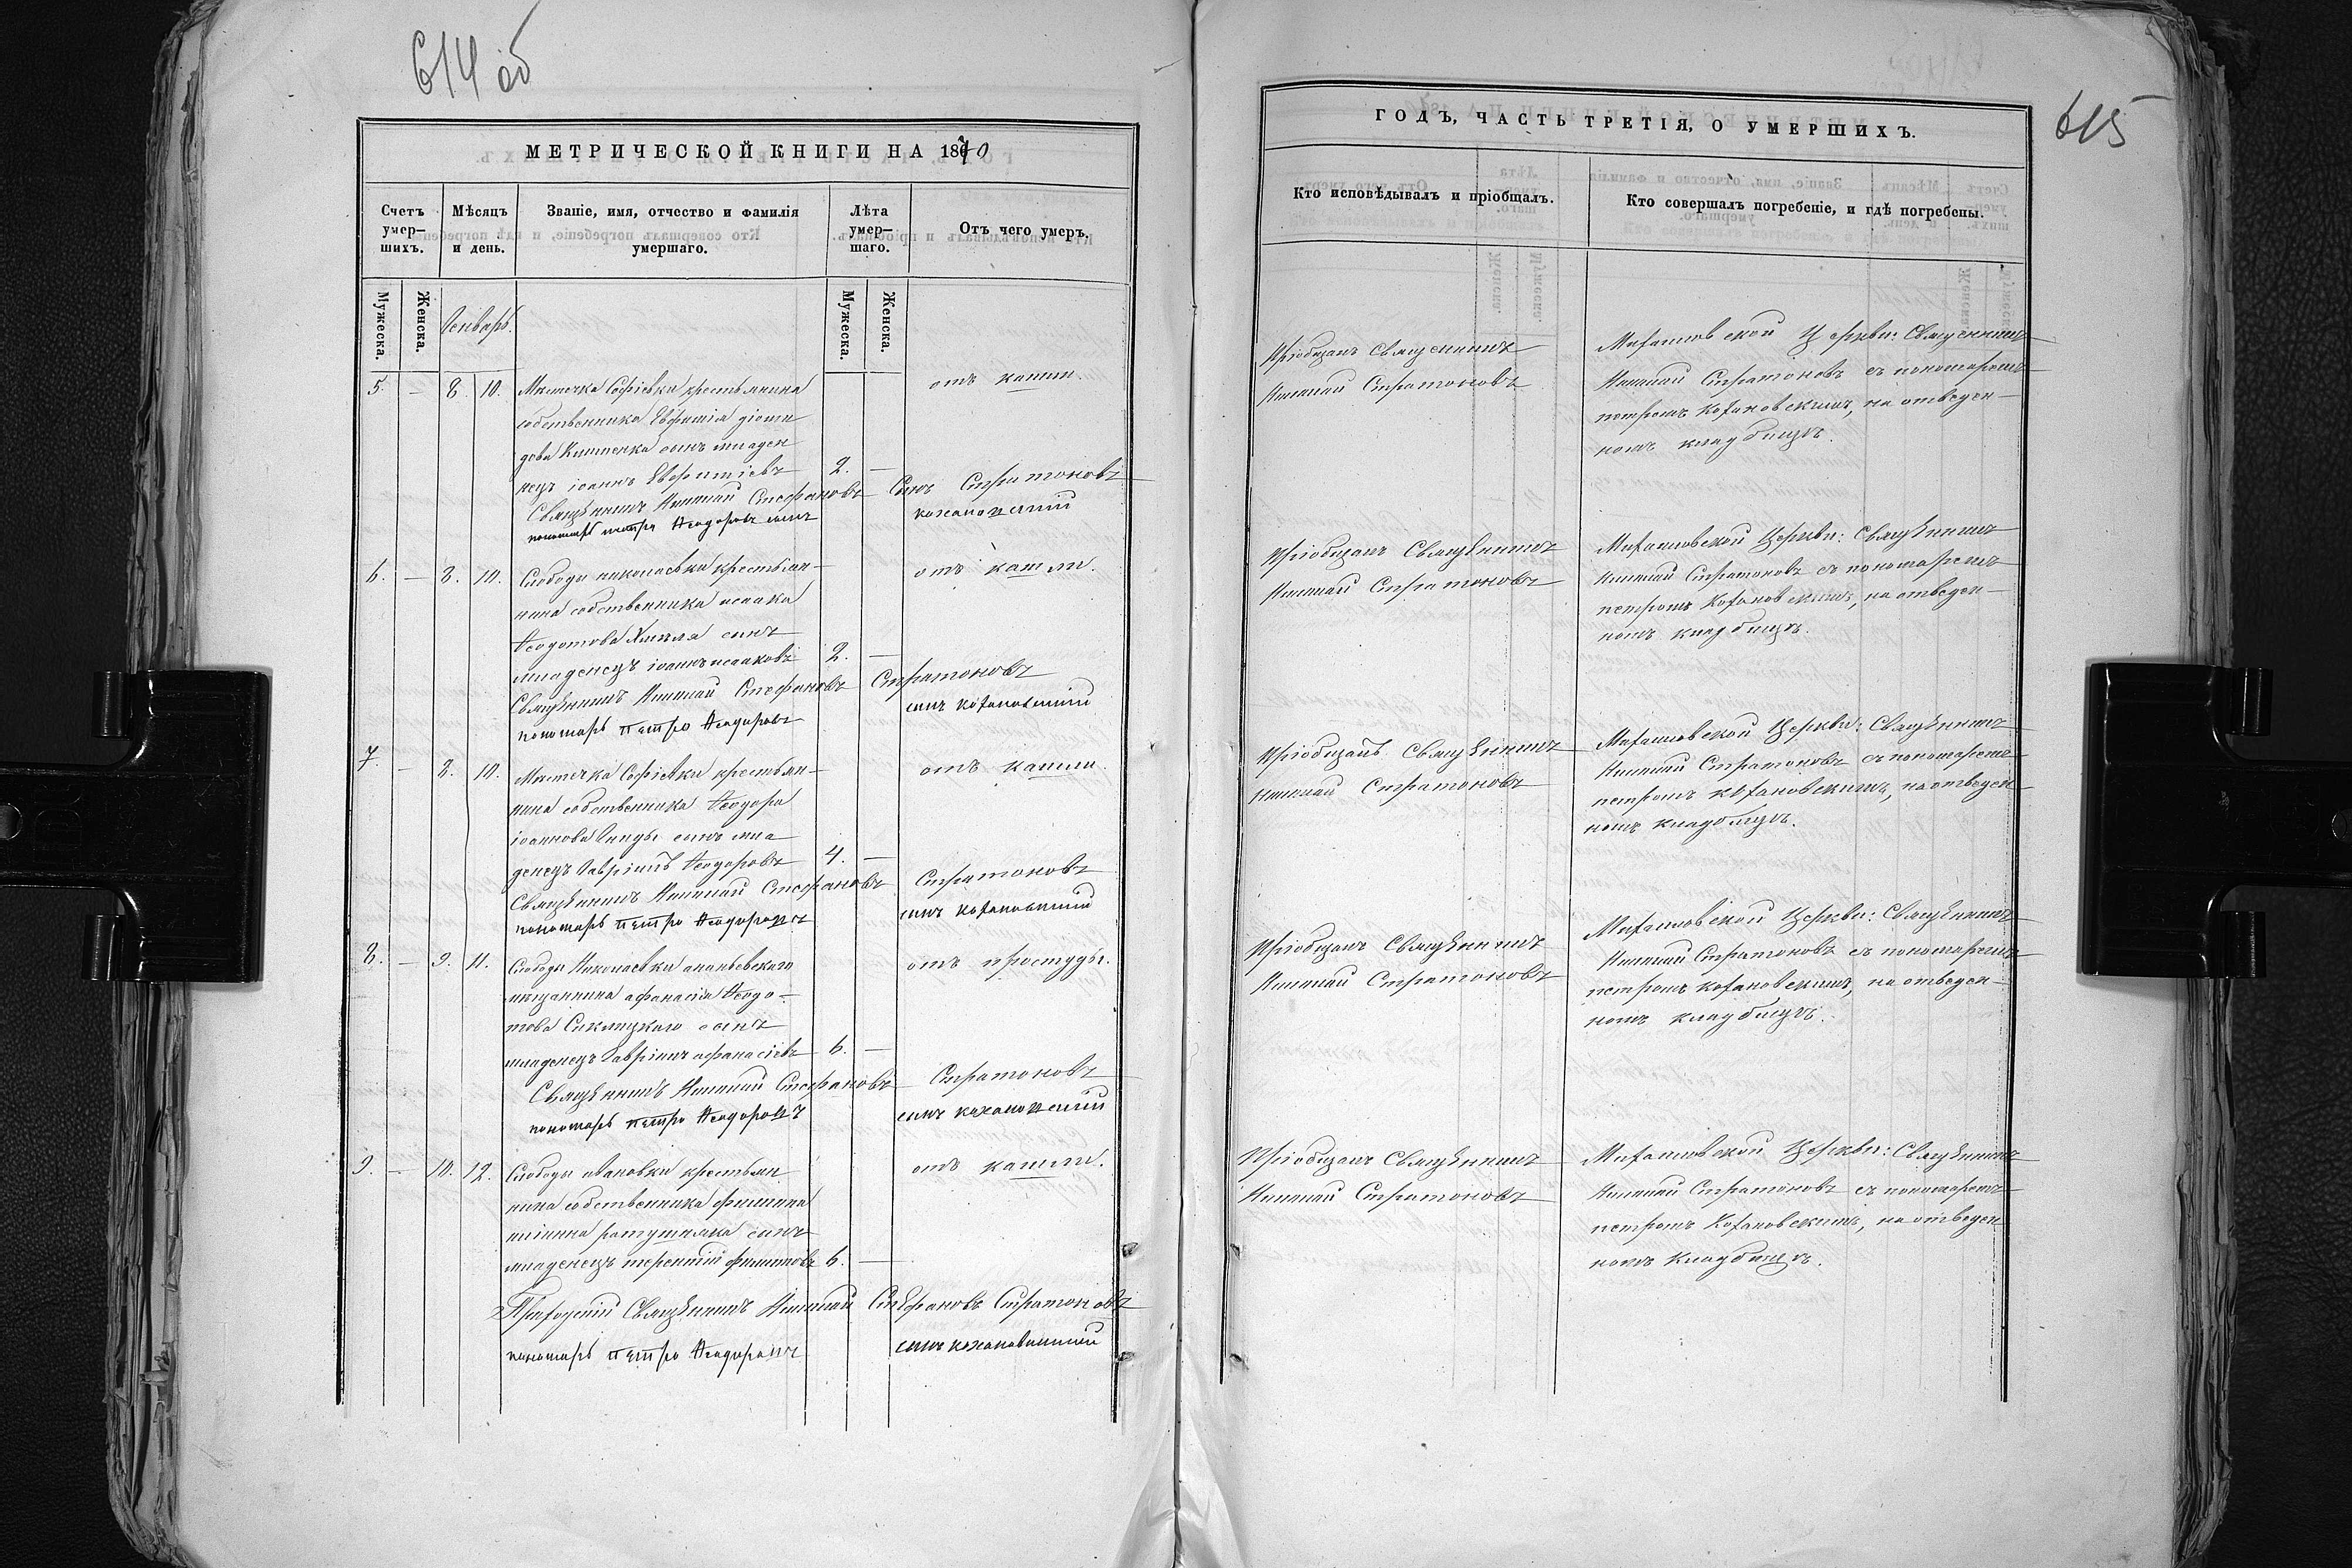 614 об
МЕТРИЧЕСКОЙ КНИГИ НА 1870
Счетъ умер-шихъ.
Мѣсяцъ и день.
Званіе, имя, отчество и фамилія умершаго.
Лѣта умер-шаго.
Отъ чего умеръ.
Мужеска.
Женска.
Генварь.
Мужеска.
Женска.
5. — 8. 10. Мѣстечка Софіевки крестьянина
собственника Евфимія
сынъ младен
нецъ іоаннъ Евфиміевъ 2. —
отъ кашли.
Священникъ Николай Стефановъ Сынъ Стратоновъ
пономарь петръ Ѳеодоровъ сынъ кохановскій
6. — 8. 10. Слободы николаевки крестьян-
нина собственника исаака
Ѳеодотова сынъ
младенецъ іоаннъ исааковъ 2. —
отъ кашли.
Священникъ Николай Стефановъ Стратоновъ
пономарь петро Ѳеодоровъ сынъ кохановскій
7. — 8. 10. Мѣстечка Софіевки крестьян-
нина собственника Ѳеодора
іоаннова сынъ мла
денецъ Гавріилъ Ѳеодоровъ 4. —
отъ кашли.
Священникъ Николай Стефановъ Стратоновъ
пономарь петро Ѳеодоровъ сынъ кохановскій
8. — 9. 11. Слободы Николаевки ананьевскаго
мѣщанина афанасія Ѳеодо-
това сынъ
младенецъ Гавріилъ афанасіевъ 6. —
отъ простуды.
Священникъ Николай Стефановъ Стратоновъ
пономарь петро Ѳеодоровъ сынъ кохановскій
9. — 10. 12. Слободы крестьян
нина собственника филиппа
ратушняка сынъ
младенецъ терентій филипповъ 6. —
отъ кашли.
Приходскій Священникъ Николай Стефановъ Стратоновъ
пономарь петро Ѳеодоровъ сынъ кохановскій
615
ГОДЪ, ЧАСТЬ ТРЕТІЯ, О УМЕРШИХЪ.
Кто исповѣдывалъ и пріобщалъ.
Кто совершалъ погребеніе, и гдѣ погребены.
Пріобщалъ Священникъ
Николай Стратоновъ
Михайловской Церкви: Священникъ
Николай Стратоновъ съ пономаремъ
петромъ Кохановскимъ, на отведен-
номъ кладбищѣ.
Пріобщалъ Священникъ
Николай Стратоновъ
Михайловской Церкви: Священникъ
Николай Стратоновъ съ пономаремъ
петромъ Кохановскимъ, на отведен-
номъ кладбищѣ.
Пріобщалъ Священникъ
Николай Стратоновъ
Михайловской Церкви: Священникъ
Николай Стратоновъ съ пономаремъ
петромъ Кохановскимъ, на отведен
номъ кладбищѣ.
Пріобщалъ Священникъ
Николай Стратоновъ
Михайловской Церкви: Священникъ
Николай Стратоновъ съ пономаремъ
петромъ Кохановскимъ, на отведен-
номъ кладбищѣ.
Пріобщалъ Священникъ
Николай Стратоновъ
Михайловской Церкви: Священникъ
Николай Стратоновъ съ пономаремъ
петромъ Кохановскимъ, на отведен
номъ кладбищѣ.